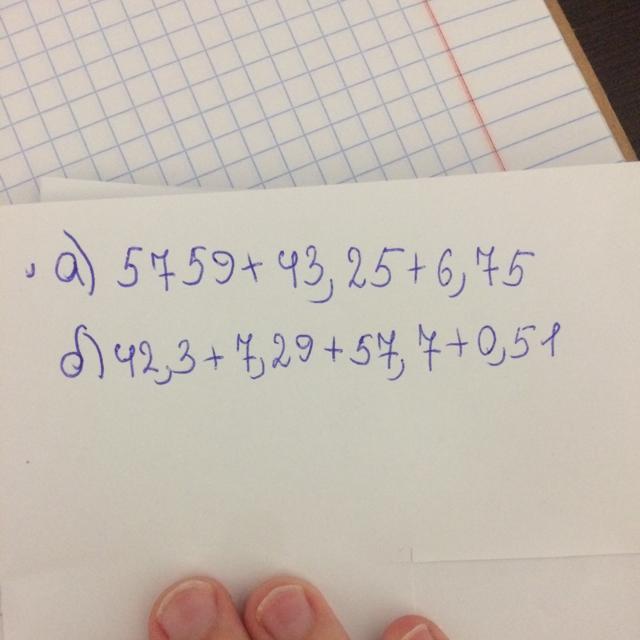 а) 5759+43,25+6,75
б) 42,3+7,29+57,7+0,51